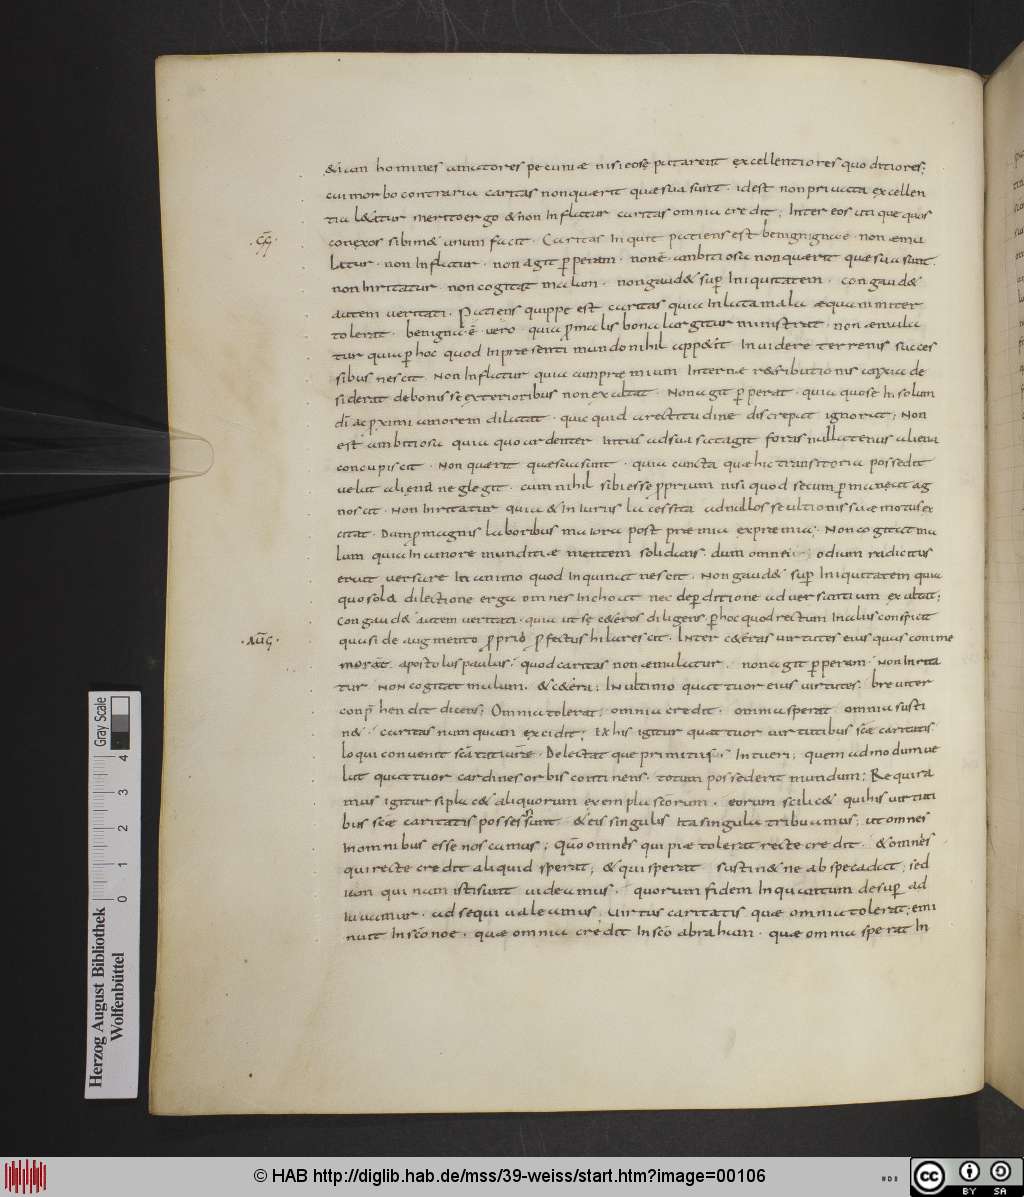 &iam homines amatores pecuniæ nisi eosę putarent excellentiores quo ditiores;
cui morbo contraria caritas non quærit quæ sua sunt · idest non privata excellen
tia lætatur merito ergo & non Inflatur caritas omnia credit; Inter eos utique quos
conexos sibim& unum facit · Caritas Inquit patiens est benigna ē · non æmu
latur · non Inflatur · non agit pperam · non ē ambitiosa non quærit quæ sua sunt ·
non Inritatur · non cogitat malum · non gaud& sup Iniquitatem · congaud&
autem veritati · Patiens quippe est caritas quia Inlata mala æquanimiter
tolerat · benigna ē vero quia p malis bona largitur ministrat · non æmula
tur quia p hoc quod In præsenti mundo nihil app&it Invidere terrenis succes
sibus nescit · Non Inflatur quia cum præmium Internæ r&ributionis anxia de
siderat de bonis se exterioribus non exaltat · Non agit pperat · quia quo se In solum
dī ac pximi amorem dilatat · quicquid a rectitudine discrepat ignorat; Non
est ambitiosa quia quo ardenter Intus ad sua satagit foras nullatenus aliena
concupiscit · Non quærit quæ sua sunt · quia cuncta quæ hic transitoria possedit
velut aliena neglegit · cum nihil sibi esse pprium nisi quod secum pmaneat ag
noscit · Non Inritatur quia & Iniuriis lacessita ad nullos se ultionis suæ motus ex
citat · Dum p magnis laboribus maiora post præmia expræmia; Non cogitat ma
lum quia In amore munditiæ mentem solidans · dum omne odium radicitus
eruit versare In animo quod Inquinat nescit · Non gaud& sup Iniquitatem quia
quo sola dilectione erga omnes Inchoat nec de pditione adversantium exultat;
Congaud& autem veritati · quia ut se c&eros diligens p hoc quod rectum In aliis conspicit
·Aūḡ·
quasi de augmento pprio pfectus hilarescit · Inter c&eras virtutes eius quas comme
morat apostolus paulus; quod caritas non æmulatur · non agit pperam · non Inrita
tur non cogitat malum · & c&era; In ultimo quattuor eius virtutes; breviter
conphendit dicens; Omnia tolerat · omnia credit · omnia sperat · omnia susti
n& · caritas numquam excidit; Ex his igitur quattuor virtutibus scæ caritatis
loqui convenit scā Delectat que primitus · Intueri; quem admodum ve
lut quattuor cardines orbis continens · totum possederit mundum; Requira
mus igitur si plac& aliquorum exempla scorum · eorum scilic& qui his virtuti
bus scæ caritatis possessi sunt · & eis singulis Ita singula tribuamus; ut omnes
In omnibus esse noscamus; Qūo omnes qui piæ tolerat recte credit · & omnes
qui recte credit aliquid sperat; & qui sperat sustin& ne ab spe cadat; sed
iam qui nam isti sunt videamus · quorum fidem Inquantum desup ad
iuvamur · adsequi valeamus; Virtus caritatis quæ omnia tolerat; emi
nuit In scō noe · quæ omnia credit In scō abraham · quæ omnia sperat In
Herzog August Bibliothek
Wolfenbüttel
Gray Scale
0 1 2 3 4
© HAB http://diglib.hab.de/mss/39-weiss/start.htm?image=00106
cc BY SA